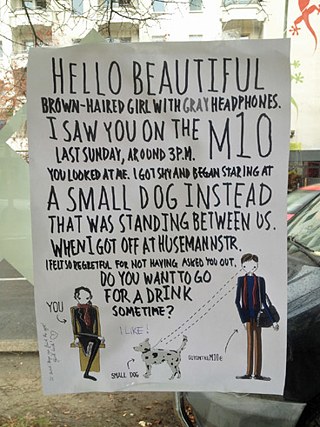 HELLO BEAUTIFUL
BROWN-HAIRED GIRL WITH GRAY HEADPHONES.
I SAW YOU ON THE M10
LAST SUNDAY, AROUND 3 P.M.
YOU LOOKED AT ME. I GOT SHY AND BEGAN STARING AT
A SMALL DOG INSTEAD
THAT WAS STANDING BETWEEN US.
WHEN I GOT OFF AT HUSEMANNSTR.
I FELT SO REGRETFUL FOR NOT HAVING ASKED YOU OUT.
DO YOU WANT TO GO
FOR A DRINK
SOMETIME?
YOU
I LIKE!
SMALL DOG